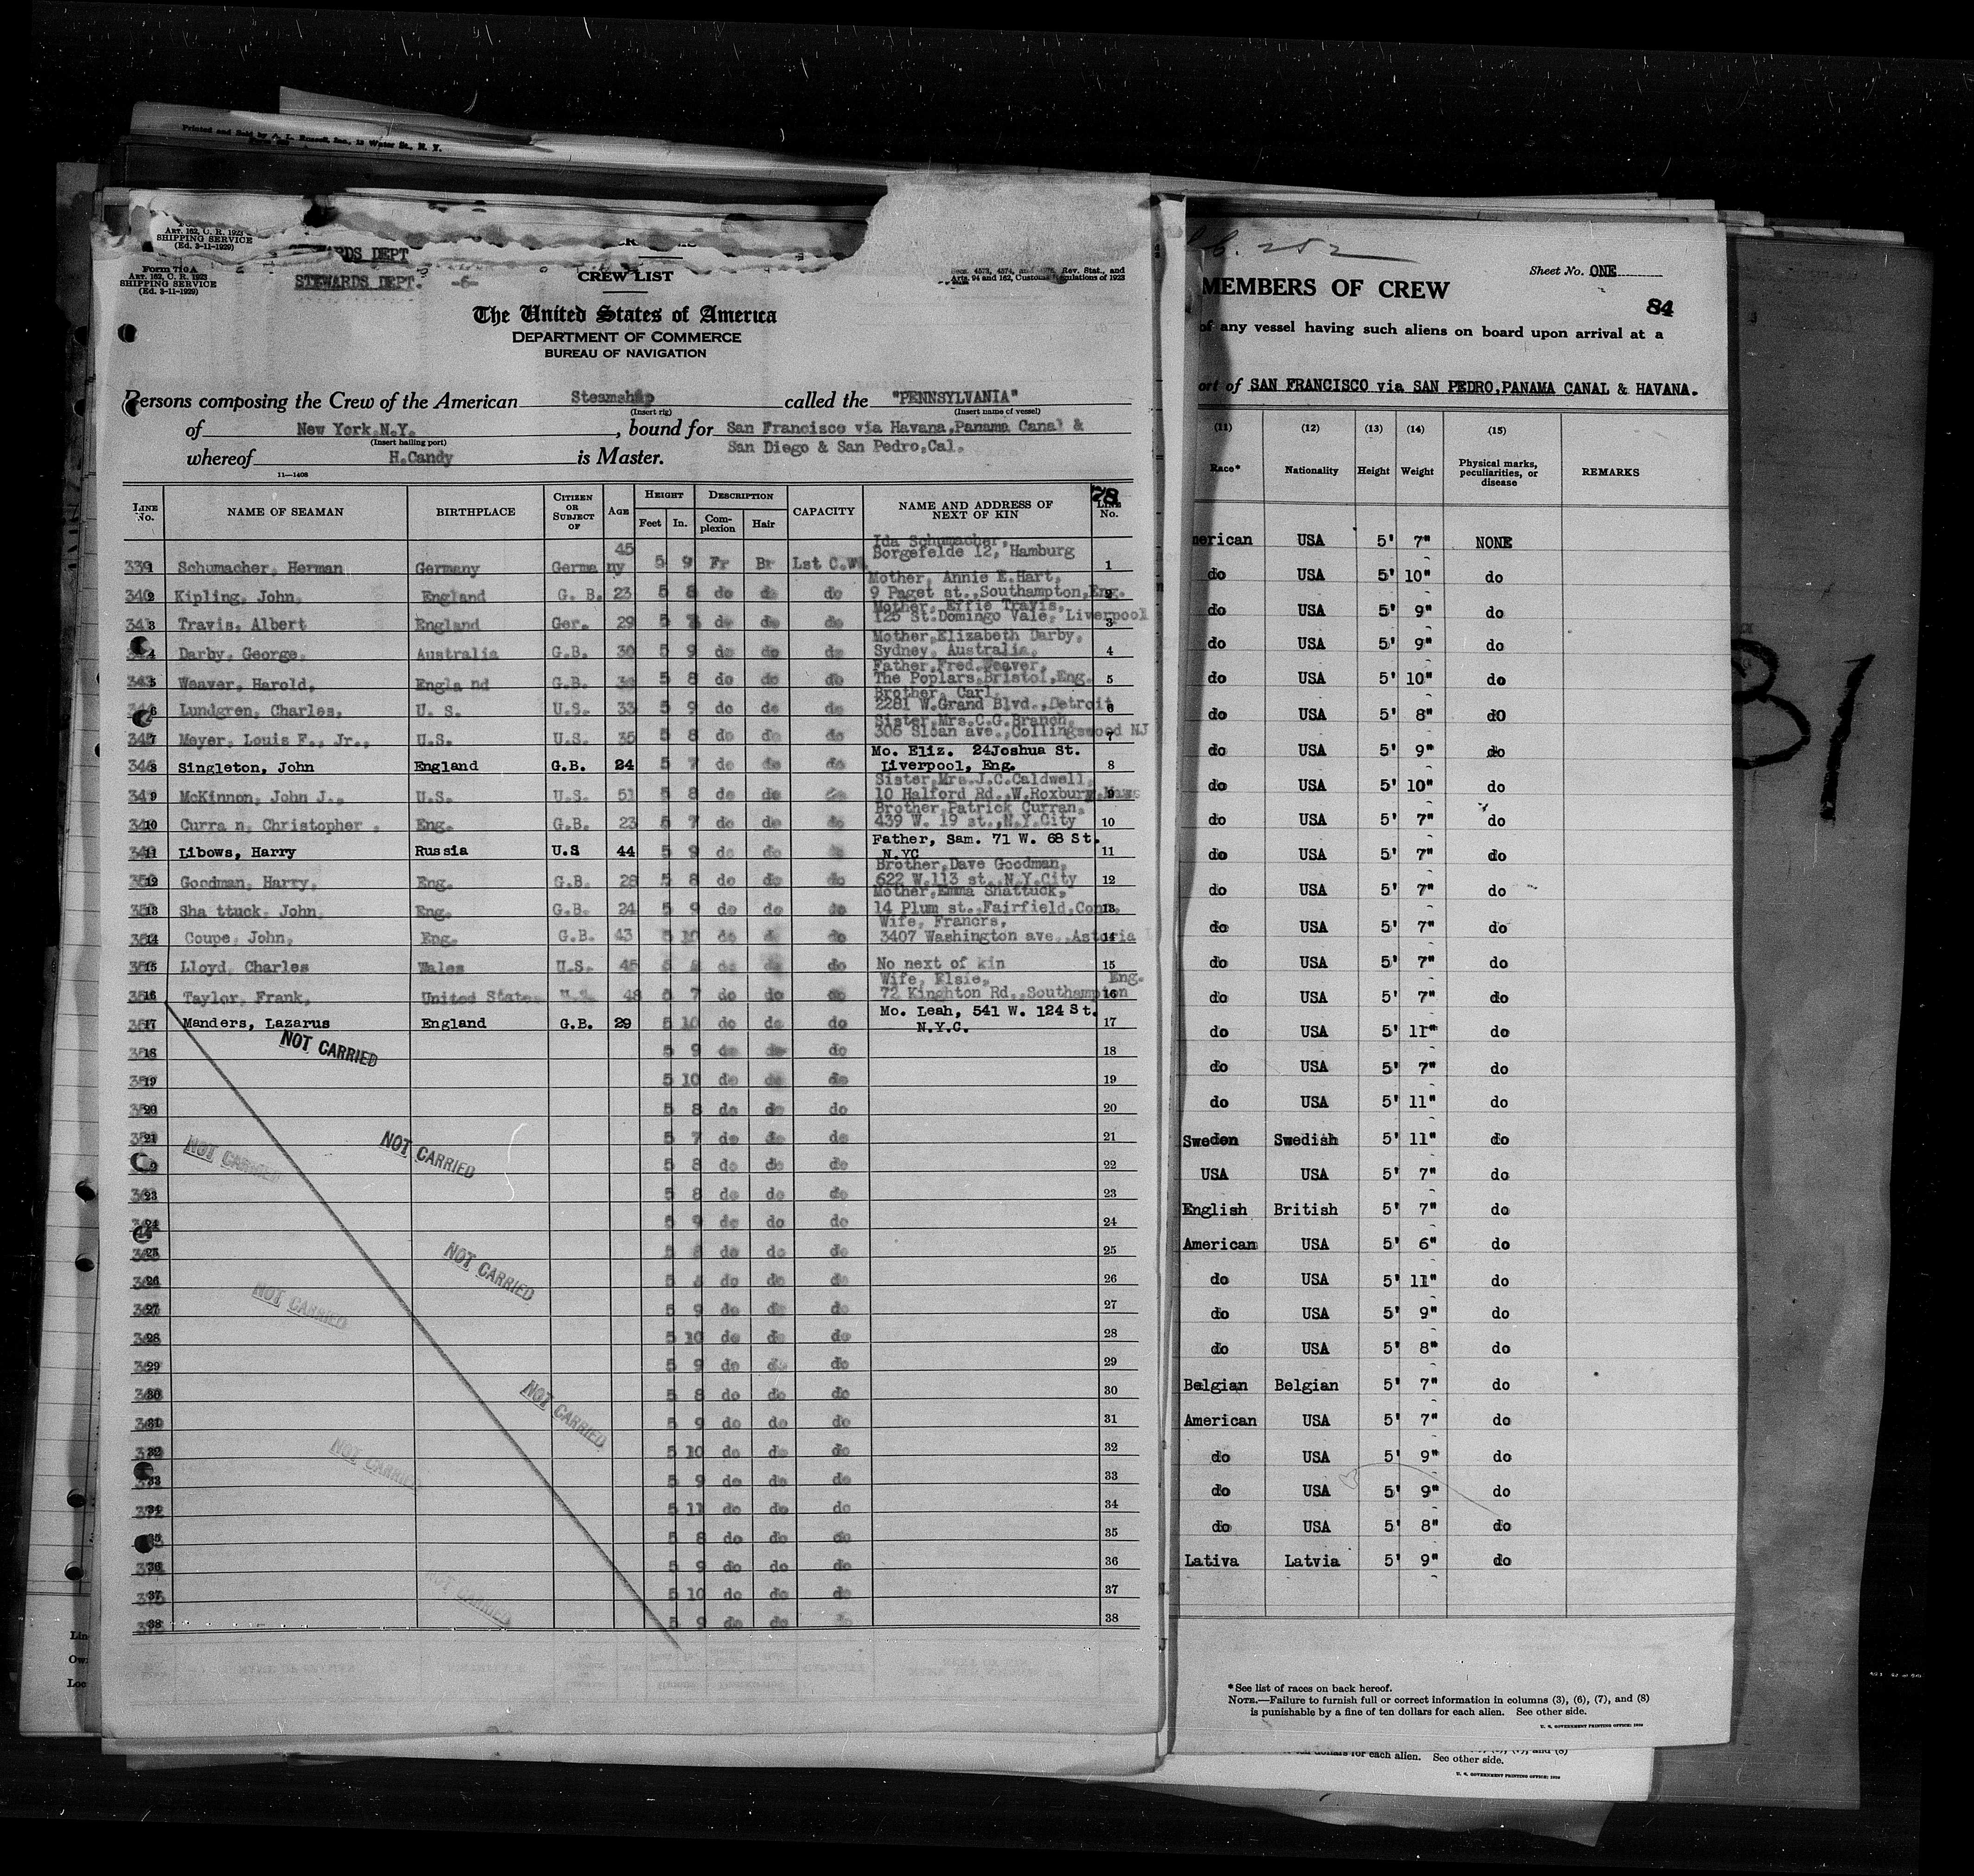 Printed and Sold by A. L. Russell, Inc., 13 Water St., N. Y.
ART. 162, C. R. 1923
SHIPPING SERVICE
(Ed. 3-11-1929)
RDS DEPT
Form 710 A
ART. 162, C. R. 1923
SHIPPING SERVICE
(Ed. 3-11-1929)
STEWARDS DEPT. -6-
CREW LIST
Secs. 4573, 4574, and 4575, Rev. Stat., and
Arts. 94 and 162, Customs Regulations of 1923
The United States of America
DEPARTMENT OF COMMERCE
BUREAU OF NAVIGATION
Persons composing the Crew of the American Steamship called the "PENNSYLVANIA"
(Insert rig) (Insert name of vessel)
of New York.N.Y. , bound for San Francisco via Havana,Panama Canal &
(Insert hailing port)
San Diego & San Pedro,Cal.
whereof H.Candy is Master.
11—1408
78
LINE No. NAME OF SEAMAN BIRTHPLACE CITIZEN OR SUBJECT OF AGE HEIGHT Feet In. DESCRIPTION Complexion Hair CAPACITY NAME AND ADDRESS OF NEXT OF KIN LINE No.
Ida Schumacher,
339 Schumacher, Herman Germany Germa ny 45 5 9 Fr Br Lst C.W Borgefelde 12, Hamburg 1
Mother, Annie E.Hart,
2 Kipling, John, England G. B. 23 5 8 do do do 9 Paget st.,Southampton,Eng. 2
Mother, Effie Travis,
3 Travis, Albert England Ger. 29 5 do do do 125 St.Domingo Vale, Liverpool 3
Mother,Elizabeth Darby,
4 Darby, George, Australia G.B. 30 5 9 do do do Sydney, Australia, 4
Father,Fred.Weaver,
5 Weaver, Harold, Engla nd G.B. 5 8 do do do The Poplars,Bristol,Eng. 5
Brother, Carl,
6 Lundgren, Charles, U. S. U.S. 33 5 9 do do do 2281 W.Grand Blvd.,Detroit 6
Sister,Mrs.C.G.Branch,
7 Meyer, Louis F., Jr., U.S. U.S. 35 5 8 do do do 306 Sloan ave.,Collingswood NJ 7
Mo. Eliz. 24Joshua St.
8 Singleton, John England G.B. 24 5 7 do do do Liverpool, Eng. 8
Sister,Mrs.J.C.Caldwell,
9 McKinnon, John J., U.S. U.S. 51 5 8 do do do 10 Halford Rd.,W.Roxbury,Mass 9
Brother,Patrick Curran,
10 Curra n, Christopher , Eng. G.B. 23 5 7 do do do 439 W. 19 st.,N.Y.City 10
Father, Sam. 71 W. 68 St.
11 Libows, Harry Russia U.S 44 5 9 do do N.YC 11
Brother,Dave Goodman,
12 Goodman, Harry, Eng. G.B. 28 5 8 do do do 622 W.113 st.,N.Y.City 12
Mother,Emma Shattuck,
13 Sha ttuck, John, Eng. G.B. 24 5 9 do do do 14 Plum st.,Fairfield,Conn. 13
Wife, Francrs,
14 Coupe, John, Eng. G.B. 43 5 10 do do 3407 Washington ave.,Astoria 14
15 Lloyd, Charles Wales U.S. 45 do No next of kin 15
Wife, Elsie, Eng.
16 Taylor, Frank, United States 48 5 7 do do do 72 Kinghton Rd.,Southampton 16
Mo. Leah, 541 W. 124 St.
17 Manders, Lazarus England G.B. 29 5 10 do do do N.Y.C. 17
NOT CARRIED
18 5 9 do do do 18
19 5 10 do do do 19
20 5 8 do do do 20
21 5 7 do do do 21
NOT CARRIED NOT CARRIED
5 8 do do do 22
23 5 8 do do do 23
24 5 9 do do do 24
25 5 8 do do do 25
NOT CARRIED
26 5 do do do 26
NOT CARRIED
27 5 9 do do do 27
28 5 10 do do do 28
29 5 9 do do do 29
30 5 8 do do do 30
NOT CARRIED
31 5 9 do do do 31
32 5 10 do do do 32
NOT CARRIED
33 5 9 do do do 33
34 5 11 do do do 34
35 5 8 do do do 35
36 5 9 do do do 36
NOT CARRIED
37 5 10 do do do 37
38 5 9 do do 38
252
Sheet No. ONE
MEMBERS OF CREW
84
of any vessel having such aliens on board upon arrival at a
ort of SAN FRANCISCO via SAN PEDRO,PANAMA CANAL & HAVANA.
(11) (12) (13) (14) (15)
Race* Nationality Height Weight Physical marks, peculiarities, or disease REMARKS
merican USA 5' 7" NONE
do USA 5' 10" do
do USA 5' 9" do
do USA 5' 9" do
do USA 5' 10" do
do USA 5' 8" dO
do USA 5' 9" do
do USA 5' 10" do
do USA 5' 7" do
do USA 5' 7" do
do USA 5' 7" do
do USA 5' 7" do
do USA 5' 7" do
do USA 5' 7" do
do USA 5' 11" do
do USA 5' 7" do
do USA 5' 11" do
Sweden Swedish 5' 11" do
USA USA 5' 7" do
English British 5' 7" do
American USA 5' 6" do
do USA 5' 11" do
do USA 5' 9" do
do USA 5' 8" do
Belgian Belgian 5' 7" do
American USA 5' 7" do
do USA 5' 9" do
do USA 5' 9" do
do USA 5' 8" do
Lativa Latvia 5' 9" do
*See list of races on back hereof.
NOTE.—Failure to furnish full or correct information in columns (3), (6), (7), and (8)
is punishable by a fine of ten dollars for each alien. See other side.
U. S. GOVERNMENT PRINTING OFFICE
dollars for each alien. See other side.
U. S. GOVERNMENT PRINTING OFFICE
Lin
Ow
Loc